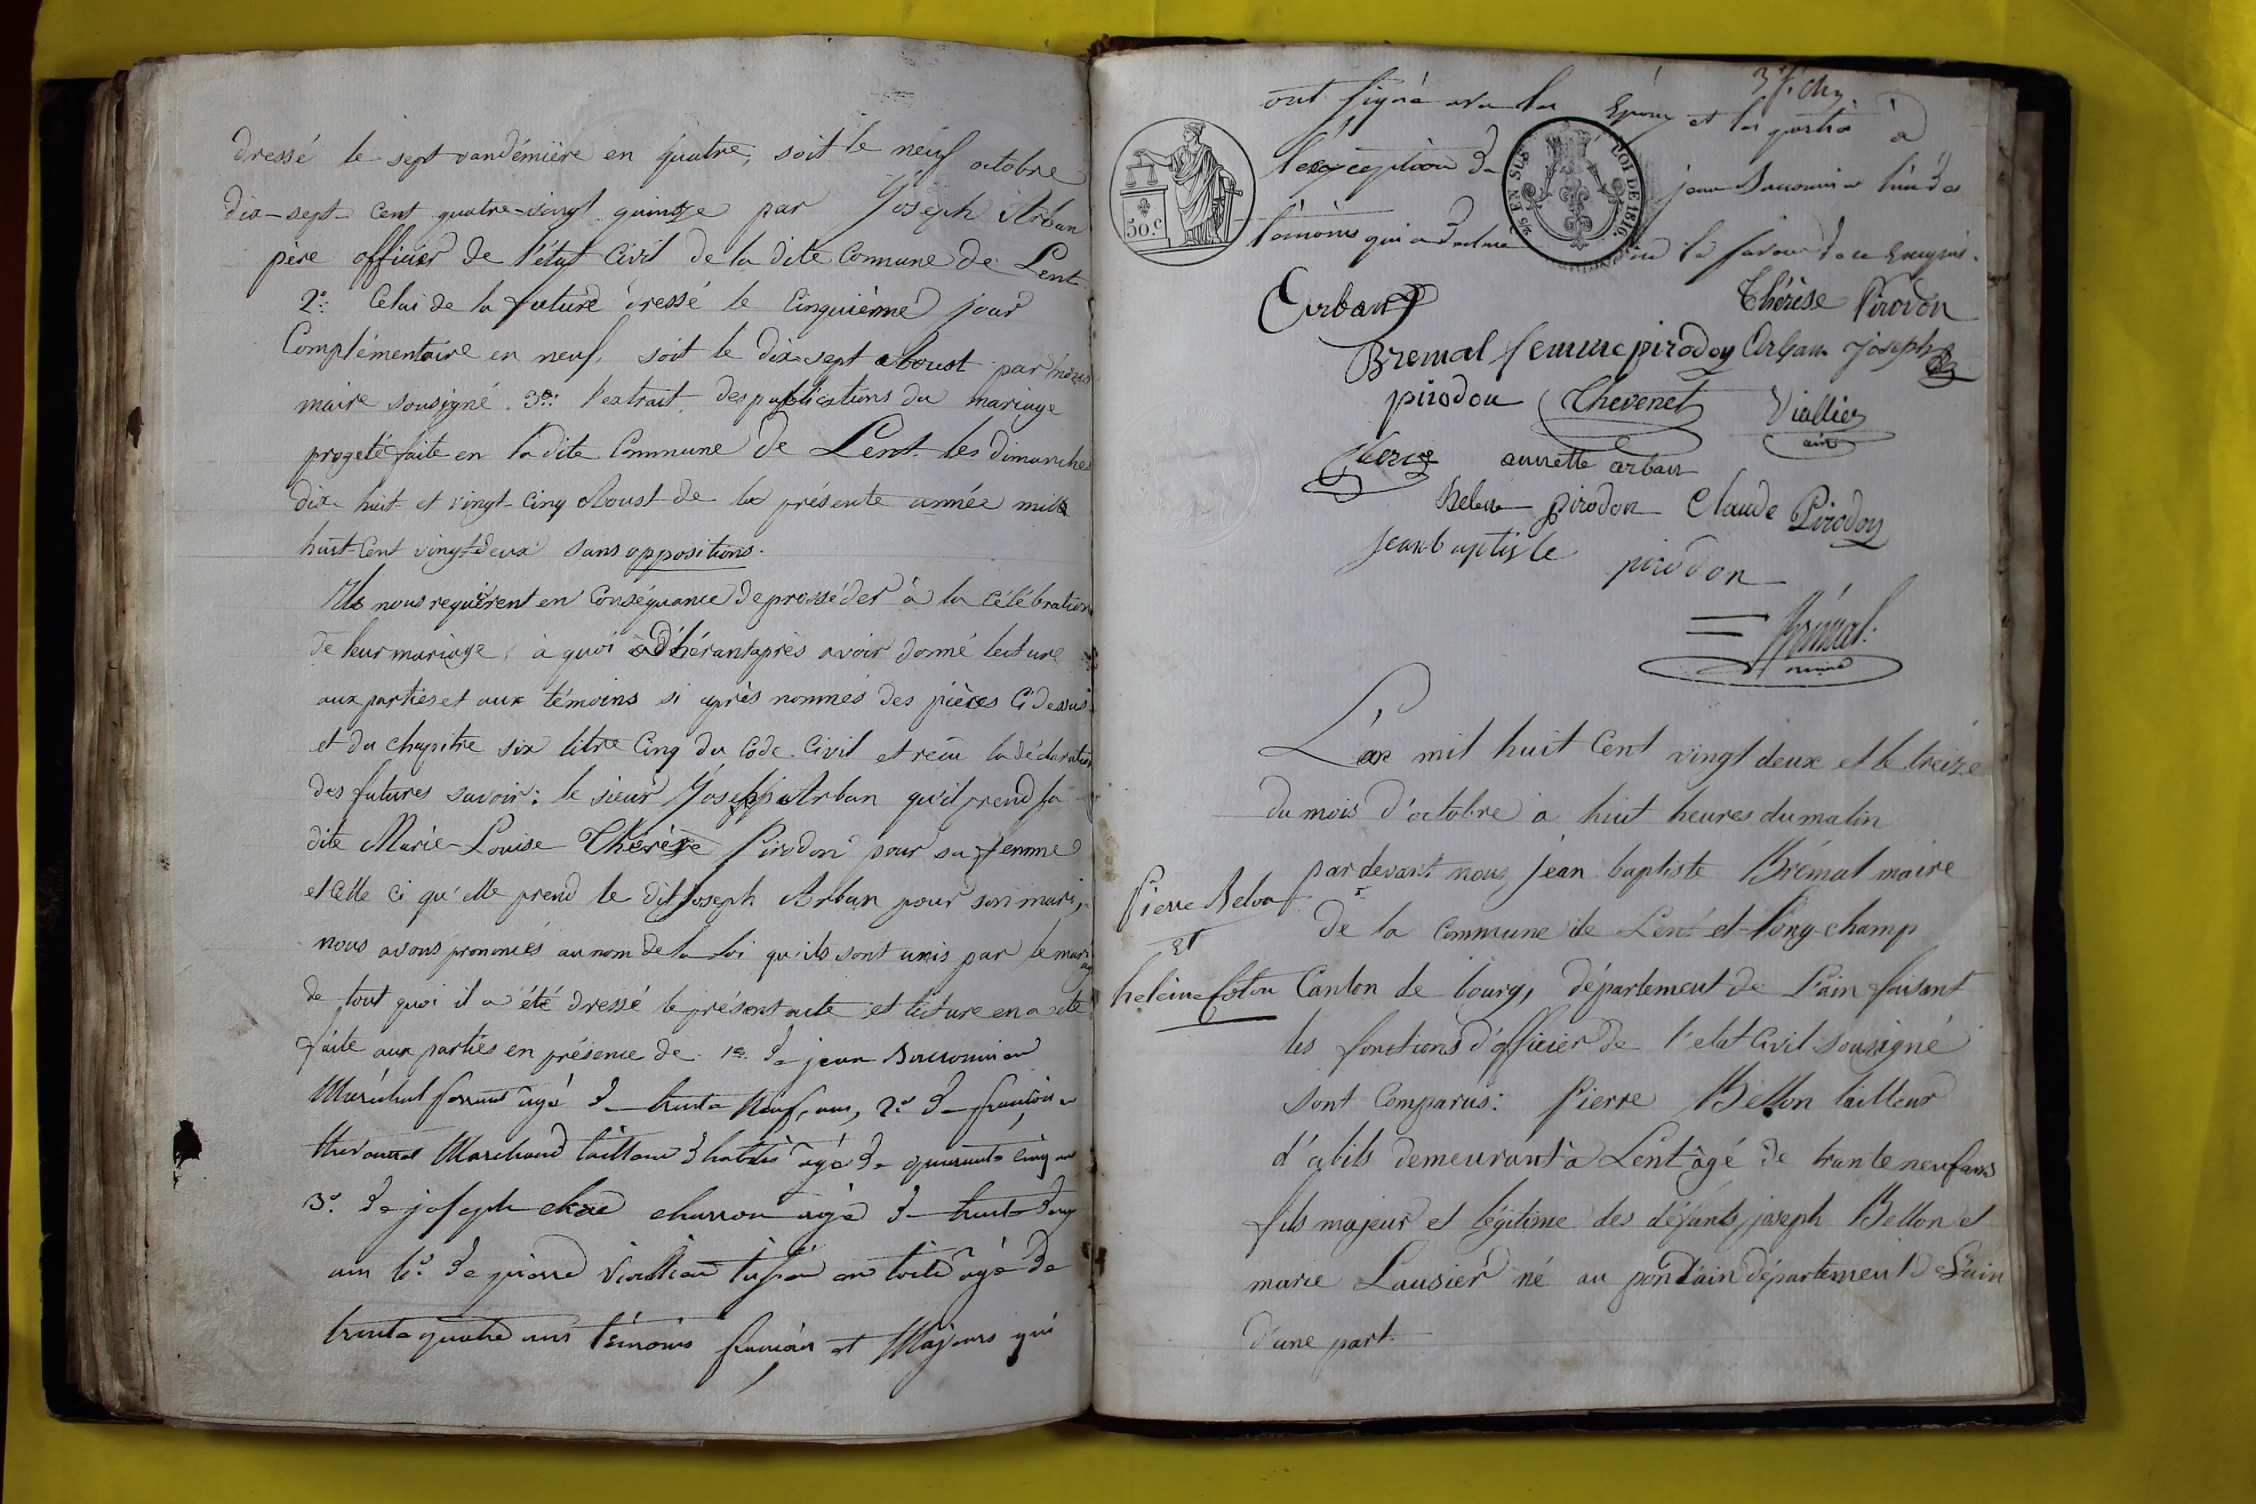 dressé le sept vandémière en quatre, soit le neuf octobre
dix-sept-cent quatre-vingt quinze par Joseph Arban
père officier de l'état Civil de la dite Commune de Lent.
2° Celui de la future dressé le Cinquième jour
Complémentaire en neuf, soit le dix sept aboust par nous
maire sousigné. 3° l'extrait des publications du mariage
progeté faite en la dite Commune de Lent les dimanches
dix huit et vingt-cinq Aboust de la présente année mille
huit-Cent vingt-deux sans oppositions.
Ils nous requièrent en Conséquance de prosséder à la célébration
de leur mariage, à quoi adhérant après avoir donné lecture
aux parties et aux témoins si après nommés des pièces Ci dessus
et du chapitre six titre Cinq du Code Civil et reçu la déclaration
des futures savoir: le sieur Joseph Arban qu'il prend la
dite Marie-Louise Thérèse Pirodon pour sa femme
et Celle Ci qu'elle prend le dit Joseph Arban pour son mari,
nous avons prononcés au nom de la loi qu'ils sont unis par le mariage
de tout quoi il a été dressé le présent acte et lecture en a été
faite aux parties en présence de 1° de jean
Maréchal ferrant agé de trente Neuf ans, 2° de françois
Marchand tailleur d'habits agé de quarante cinq ans
3° de joseph charron agé de trente deux
ans 4° de pierre en toile agé de
trente quatre ans témoins français et Majeurs qui
ont signé avec les Epoux et les parties à
l'exception de jean l'un des
témoins qui a déclaré le
30.C
25 EN SUS
LOI DE 1816.
Arban Thérèse Pirodon
Bremal femme pirodon Arban Joseph
pirodon Thevenet Viallier
ainé
annette arban
helene pirodon Claude Pirodon
jean baptiste pirodon
Brémal
maire
L'an mil huit Cent vingt deux et le treize
du mois d'octobre a huit heures du matin
pardevant nous jean baptiste Brémal maire
de la Commune de Lent-et-long-champ
Canton de bourg, département de l'ain faisant
les fonctions d'officier de l'etat Civil sousigné
sont Comparus: Pierre Bellon tailleur
d'abils demeurant à Lent âgé de trante neuf ans
fils majeur et légitime des défunts joseph Bellon et
marie Lausier né au pond'ain département de L'ain
d'une part.
Pierre
Et
helène